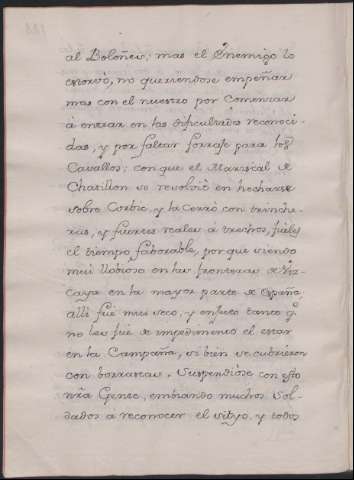 al Boloñes; mas el Enemigo lo
estorvò, no queriendose empeñar
mas con el nuestro por comenzar
à entrar en las dificultades reconoci-
das, y por faltar forraje para los
Cavallos; con que el Mariscal de
Chatillon se resolviò en hecharse
sobre Corbie, y la Cerrò con trinche-
ras, y fuertes reales à trechos, fuele
el tiempo faborable, por que siendo
mui llobioso en las fronteras de Viz-
caya en la mayor parte de España
alli fuè mui seco, y enjuto tanto q.
no les fuè de impedimento el estar
en la Campaña, si bien se cubrieron
con borrascas. Suspendiose con esto
nra Gente, embiando muchos Sol-
dados à reconocer el sityo, y todos